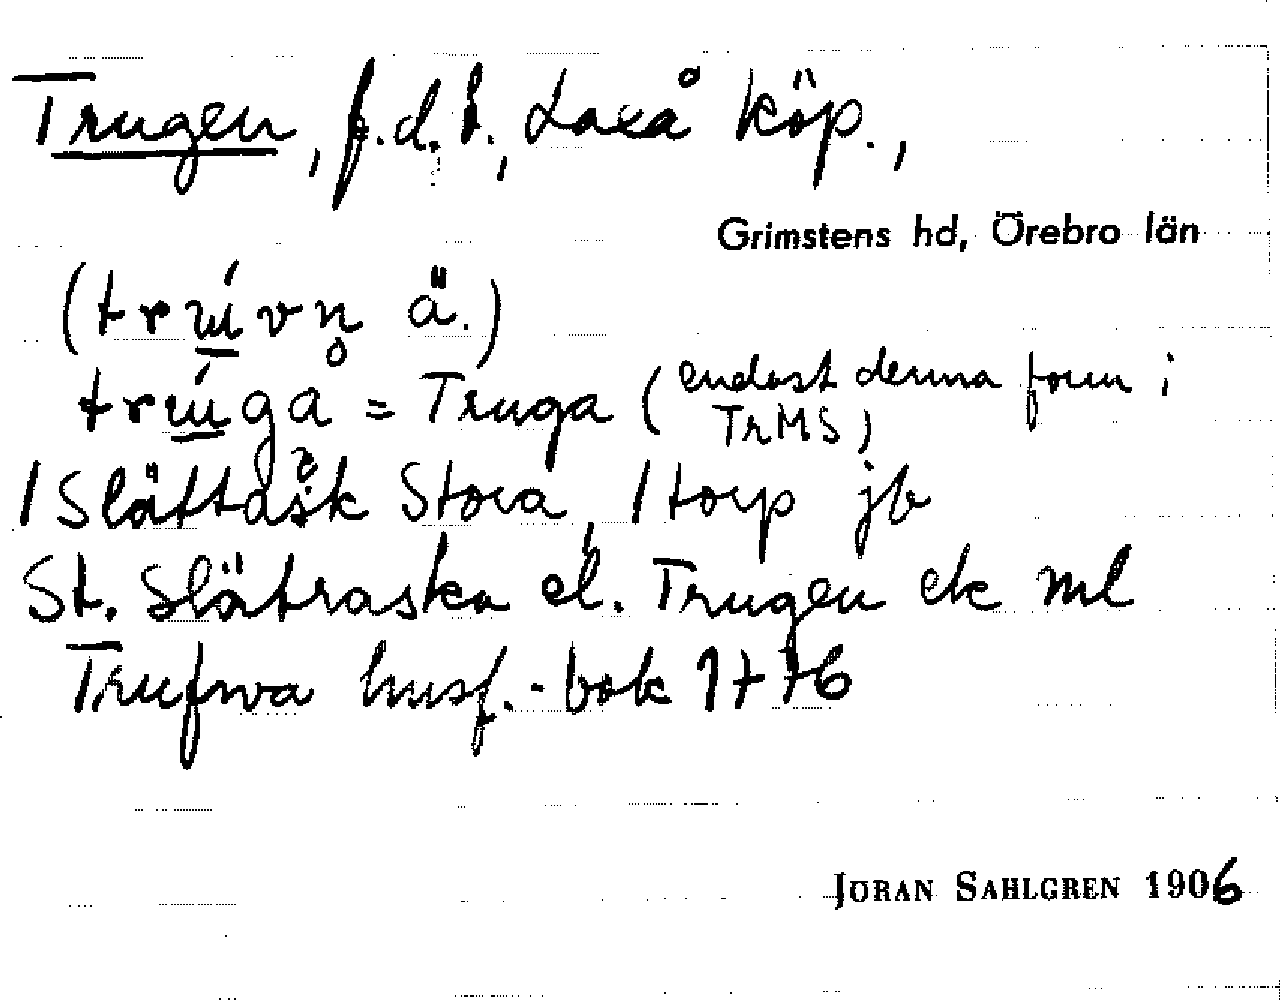 Trugen, f.d.t., Laxå köp.,
Grimstens hd, Örebro län
(trɯ́vn̥ ä.)
trɯ́ga = Truga (endast denna form i TrMS)
1 Slättäsk Stora, 1 torp jb
St. Slätraska el. Trugen ek ml
Trufwa husf.-bok 1776
JORAN SAHLGREN 1906